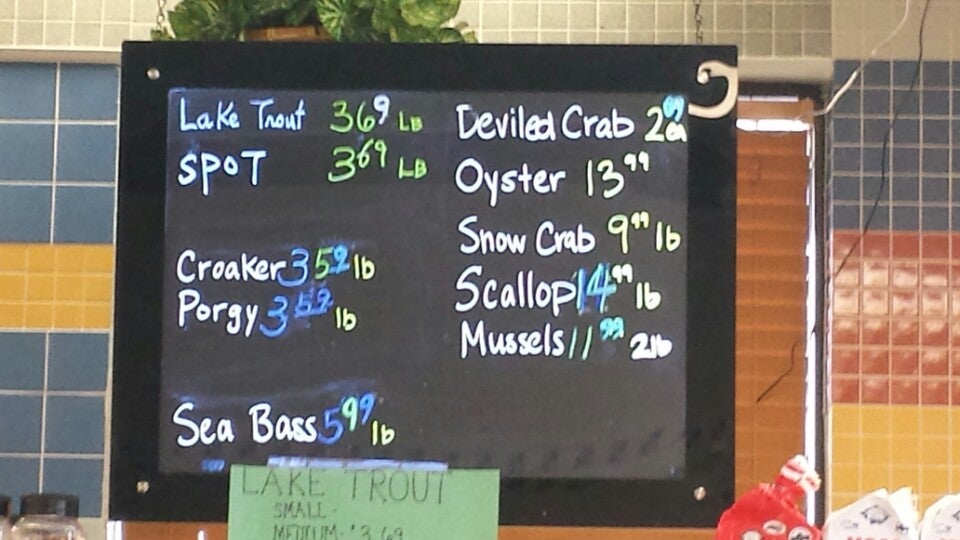 Lake Trout 3 69 LB
SPOT 3 69 LB
Croaker 3 59 lb
Porgy 3 59 lb
Sea Bass 5 99 lb
Deviled Crab 2 ea
Oyster 13 99
Snow Crab 9 99 lb
Scallop 14 99 lb
Mussels 11 99 2lb
LAKE TROUT
SMALL -
MEDIUM - $3.69